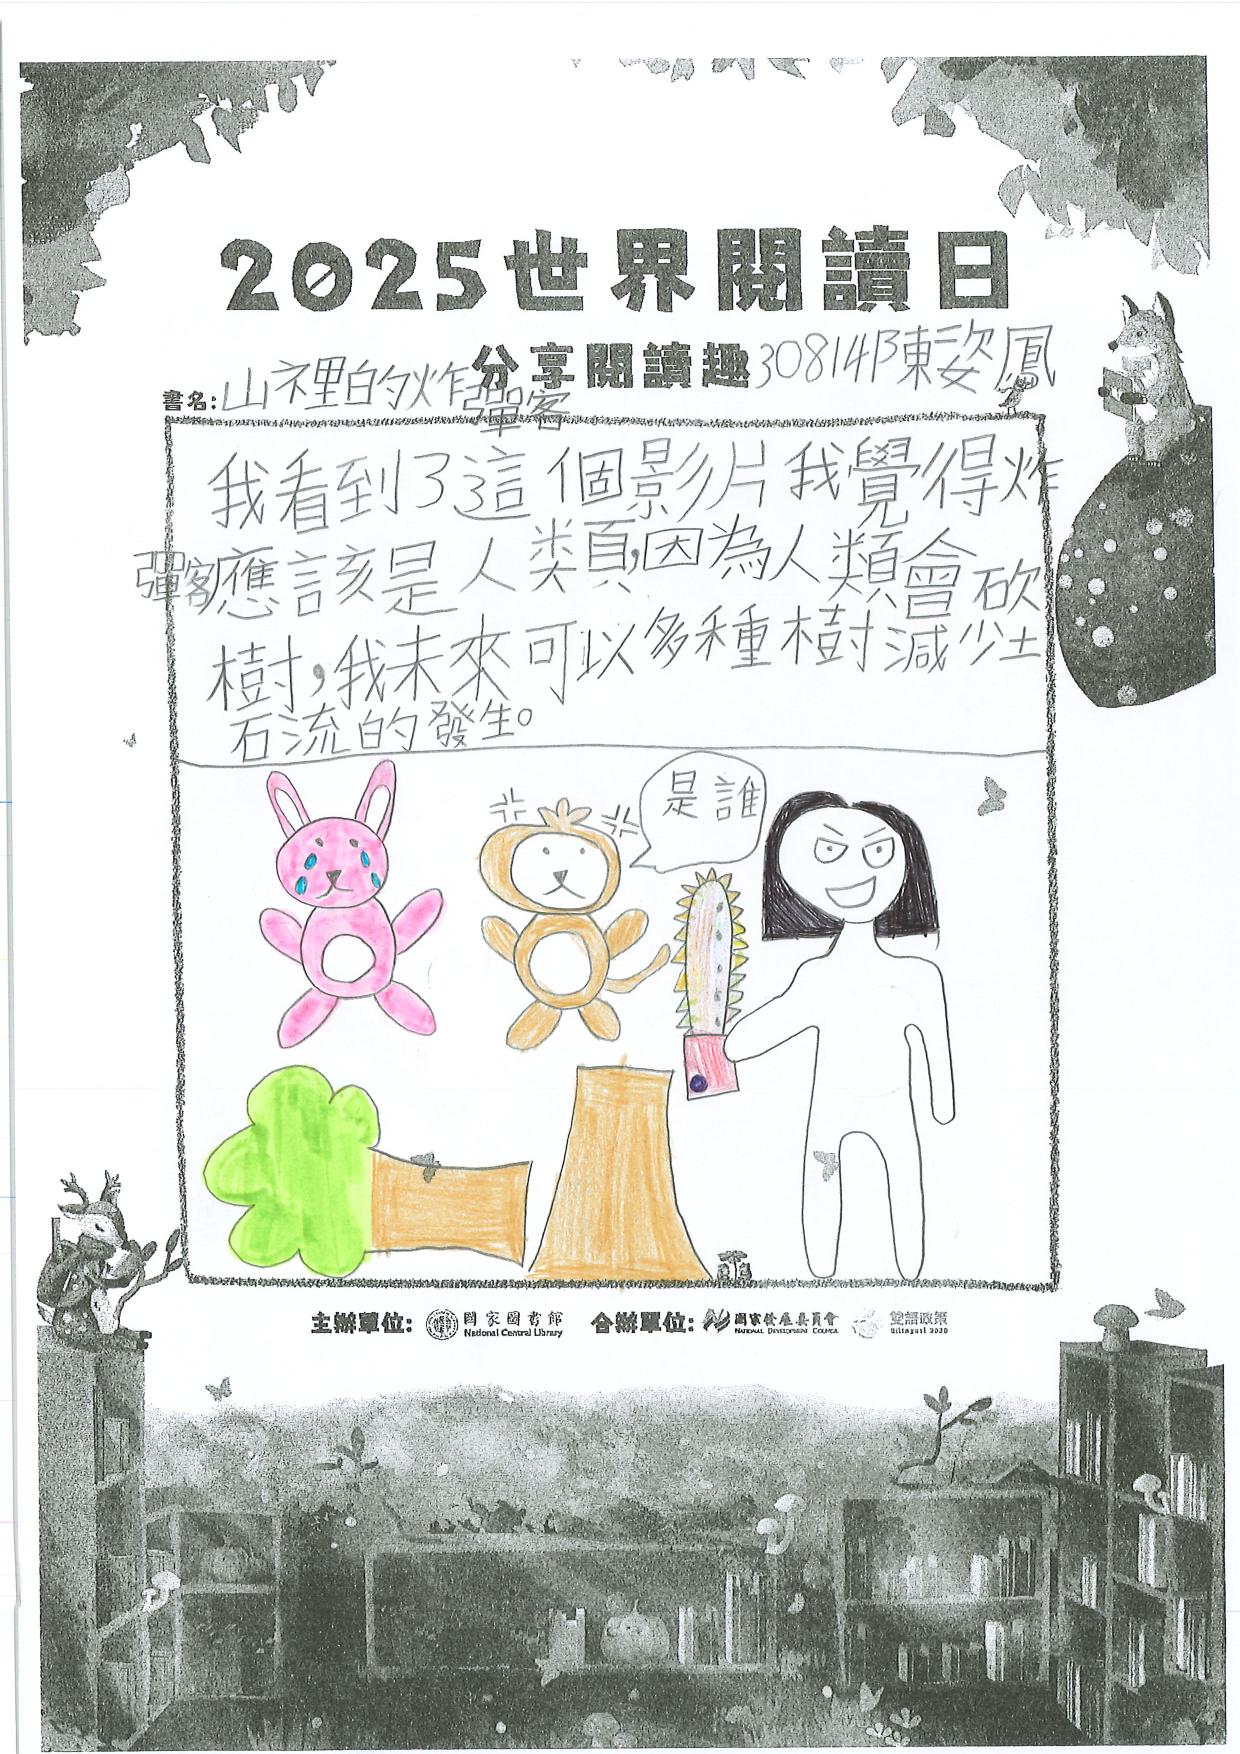 2025世界閱讀日
分享閱讀趣
30814陳姿鳳
書名:山裡的炸彈客
我看到了這個影片我覺得炸
彈客應該是人類,因為人類會砍
樹,我未來可以多種樹減少土
石流的發生。
是誰
主辦單位: 國家圖書館 National Central Library 合辦單位: 國家發展委員會 National Development Council 雙語政策 Bilingual 2030